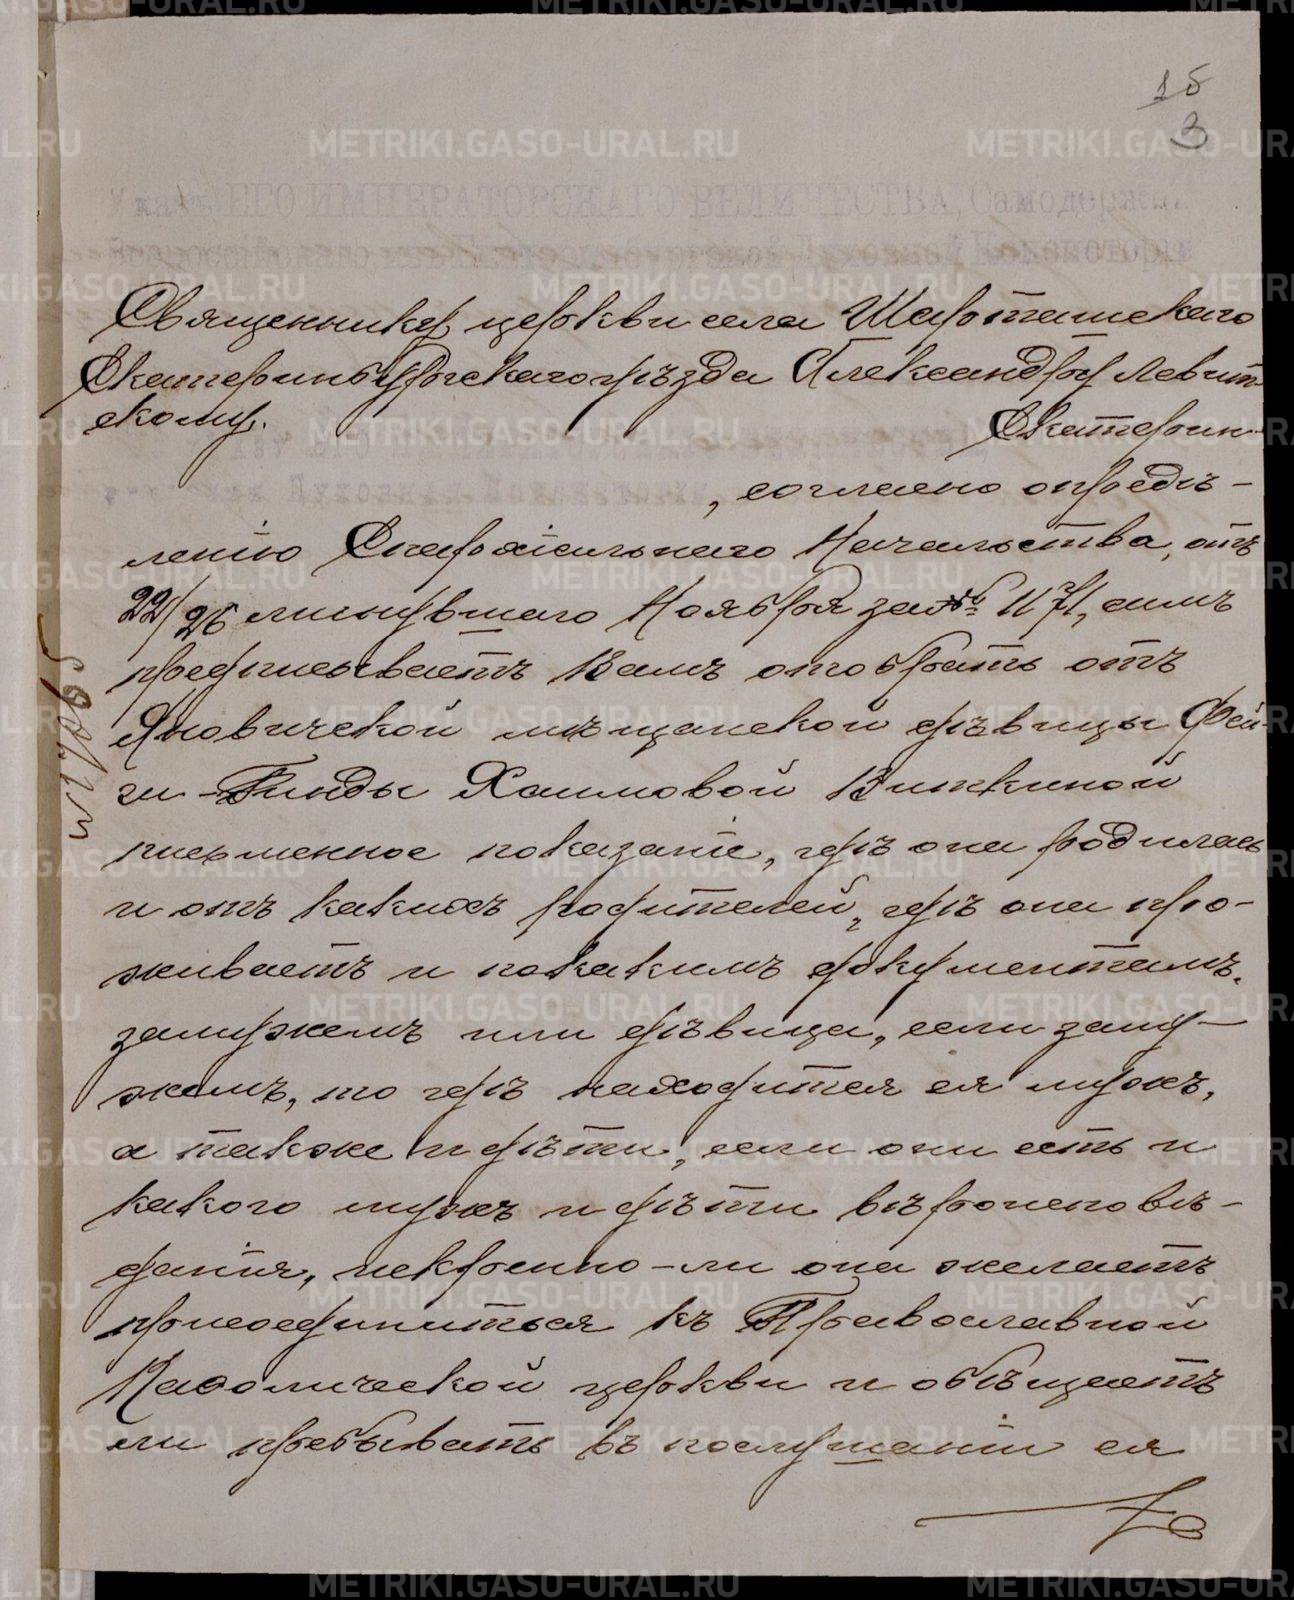 15
3
Указъ ЕГО ИМПЕРАТОРСКАГО ВЕЛИЧЕСТВА, Самодержца
Всероссійскаго, изъ Екатеринбургской Духовной Консисторіи
Священнику церкви села Шарташскаго
Екатеринбургскаго уѣзда Александру Левит-
скому.
Екатерин-
, согласно опредѣ-
ленію Епархіальнаго Начальства, отъ
22/26 минувшаго Ноября за № 1171, симъ
предписываетъ Вамъ отобрать отъ
Яновической мѣщанской дѣвицы Фей-
ги-Гинды Хаимовой Виткиной
письменное показаніе, гдѣ она родилась
и отъ какихъ родителей, гдѣ она про-
живаетъ и по какимъ документамъ,
замужемъ или дѣвица, если заму-
жемъ, то гдѣ находится ея мужъ,
а также и дѣти, если они есть и
какого мужъ и дѣти вѣроисповѣ-
данія, искренно-ли она желаетъ
присоединиться къ Православной
Каѳолической церкви и обѣщаетъ
ли пребывать въ послушаніи ея
№ 17065
METRIKI.GASO-URAL.RU